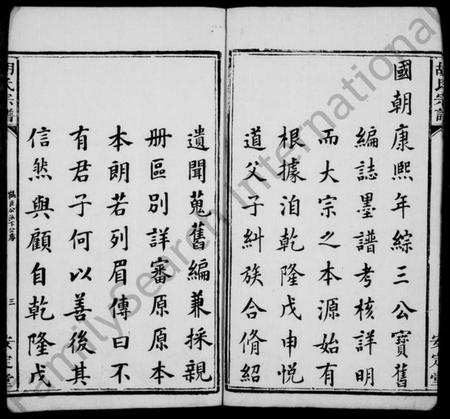 胡氏宗譜
國朝康熙年綜三公寶舊
編誌墨譜考核詳明
而大宗之本源始有
根據洎乾隆戊申悦
道父子糾族合脩紹
安定堂
遺聞蒐舊編兼採親
册區別詳審原原本
本朗若列眉傳曰不
有君子何以善後其
信然與顧自乾隆戊
胡氏宗譜
三
安定堂
FamilySearch International